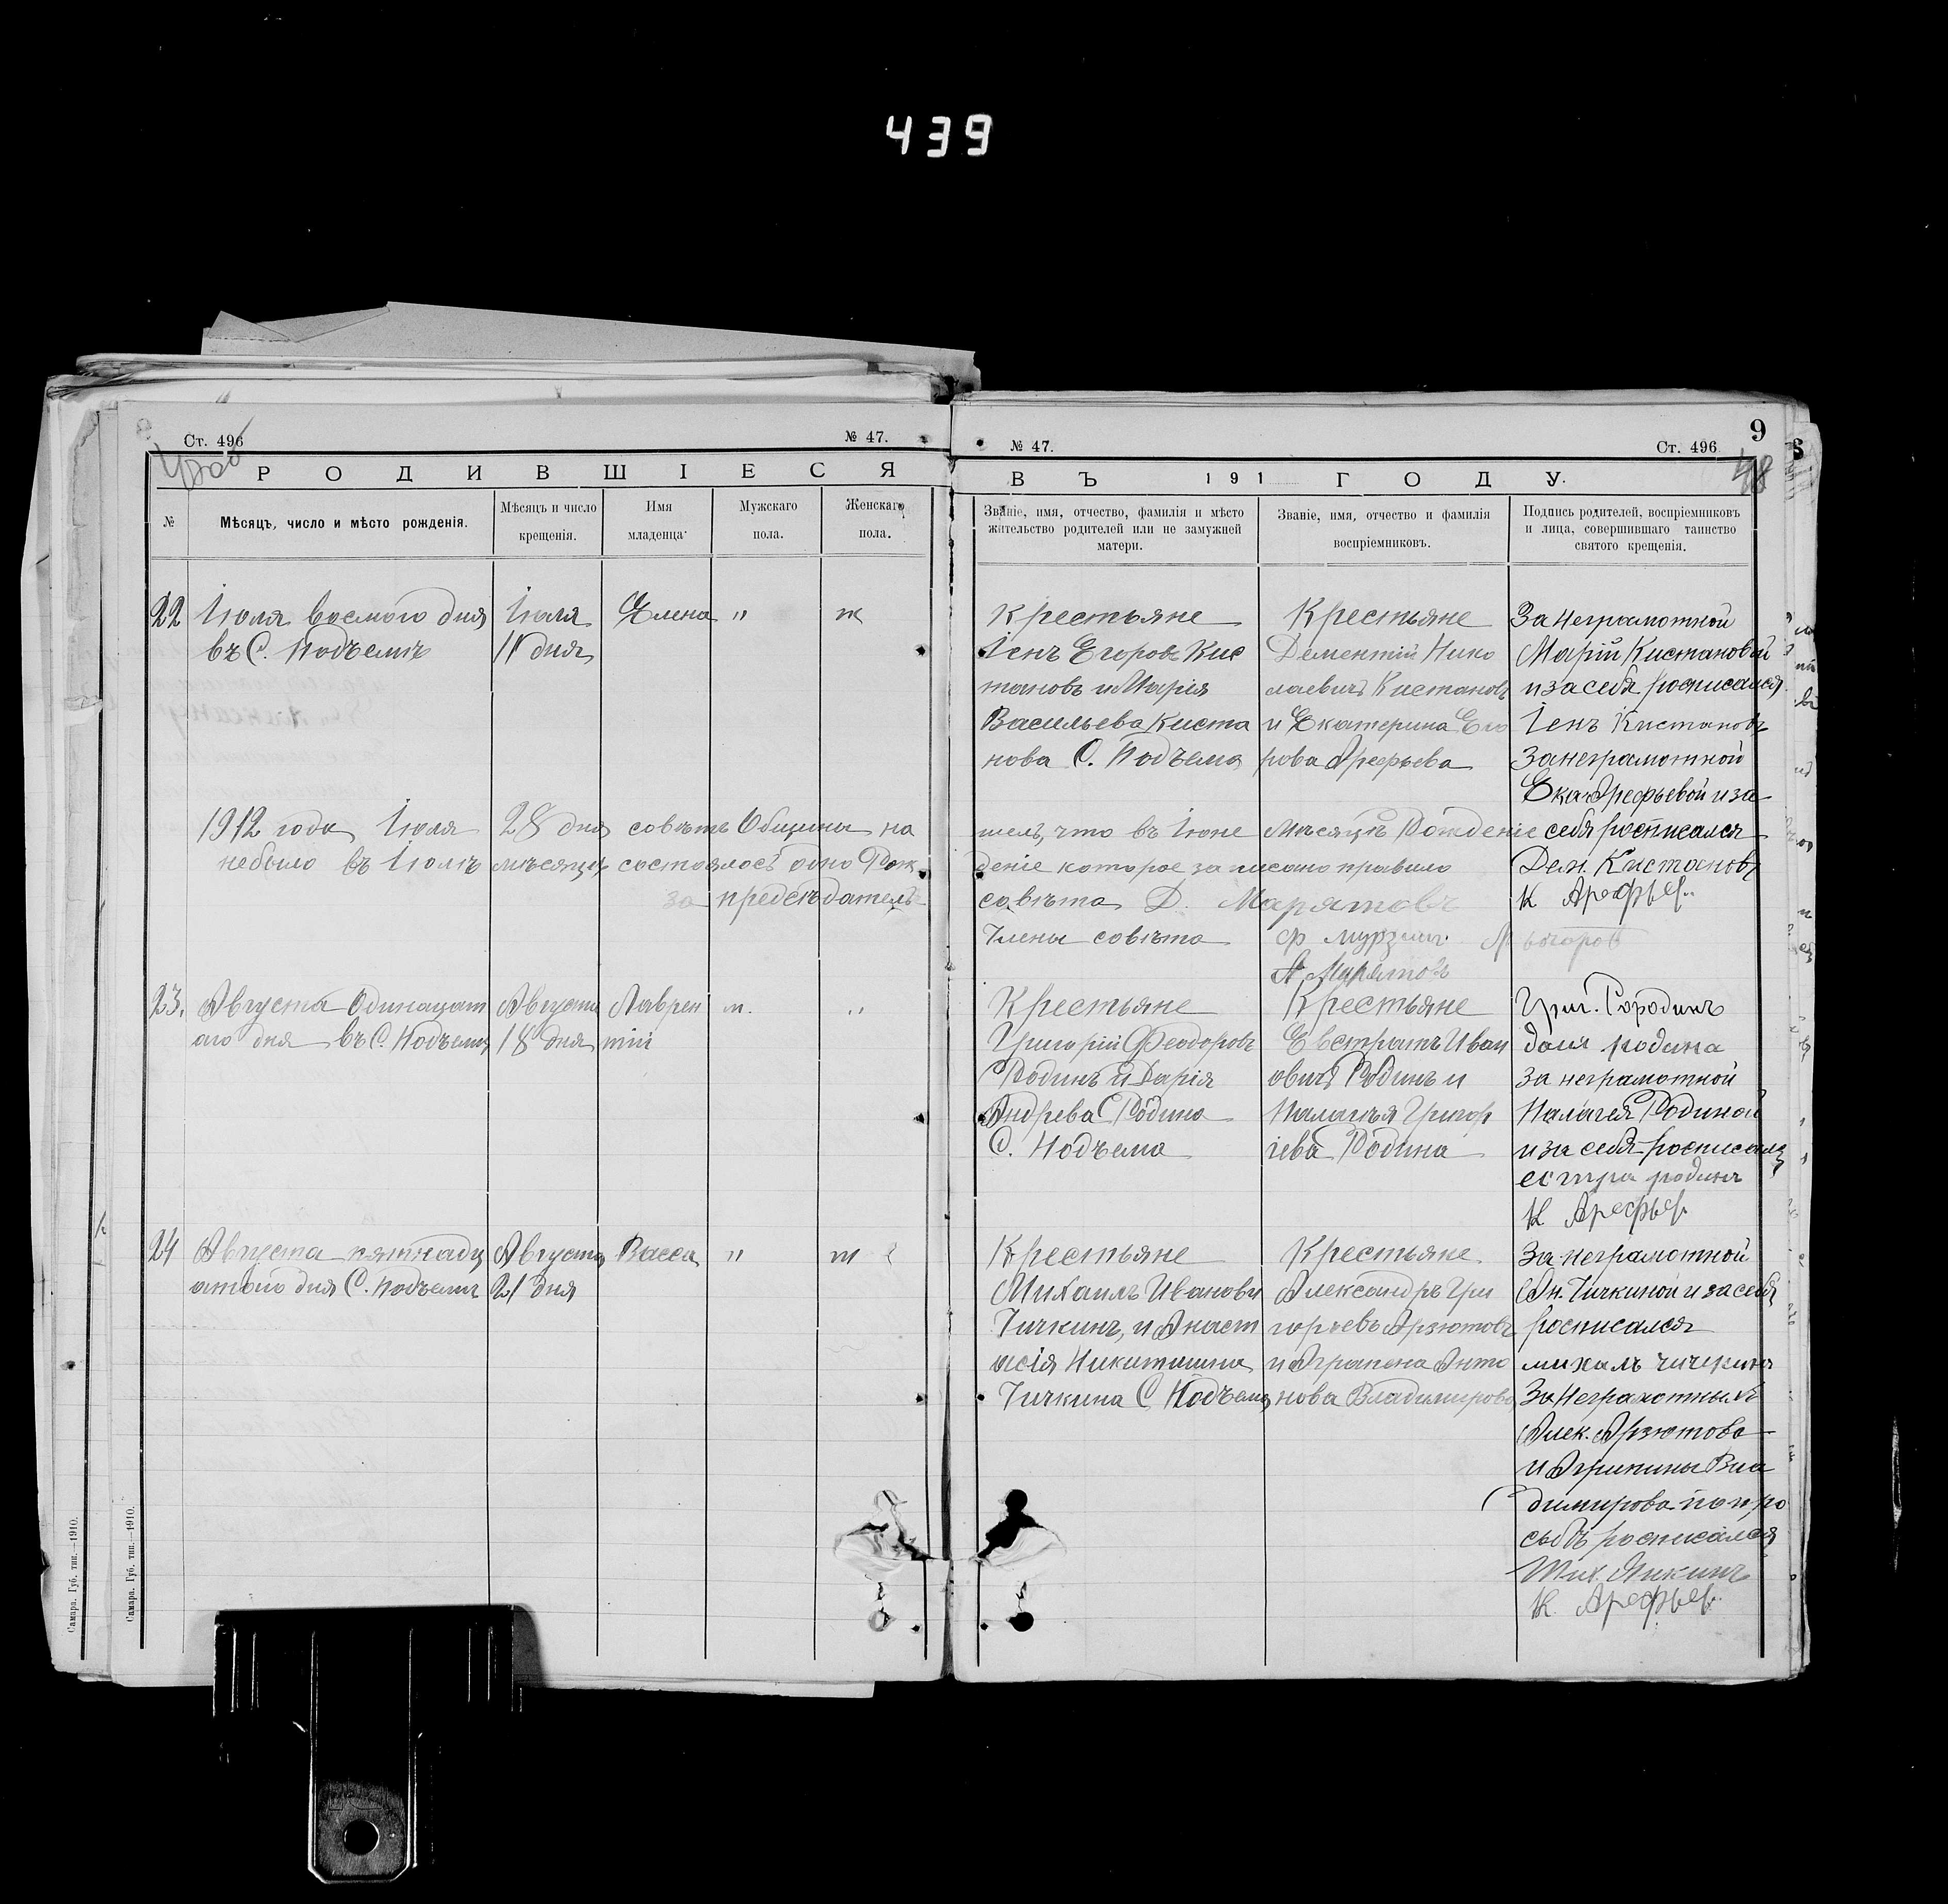 439
Ст. 496
№ 47.
РОДИВШІЕСЯ
№
Мѣсяцъ, число и мѣсто рожденія.
Мѣсяцъ и число крещенія.
Имя младенца
Мужскаго пола.
Женскаго пола.
№ 47.
Ст. 496
9
48
ВЪ 191 ГОДУ.
Званіе, имя, отчество, фамилія и мѣсто
жительство родителей или не замужней
матери.
Званіе, имя, отчество и фамилія
воспріемниковъ.
Подпись родителей, воспріемниковъ
и лица, совершившаго таинство
святого крещенія.
22 Іюля восмого дня
въ С. Подъемѣ
Іюля
11 дня
Елена
"
ж
Крестьяне
Іенъ Егоровъ Кис
тановъ и Марія
Васильева Киста
нова С. Подъема
Крестьяне
Дементій Нико
лаевичъ Кистановъ
и Екатерина Его
рова Арефьева
За неграмотной
Марій Кистановой
и за себя росписался
Іенъ Кистановъ
За неграмотной
Ека Арефьевой и за
себя росписался
Дем. Кистановъ
К Арефьев
1912 года Іюля 28 дня совѣтъ Общины на
шелъ, что въ Іюне мѣсяцѣ Рожденіе
небыло въ Іюлѣ мѣсяцу состоялось одно Рож
деніе которое записано правило
за предсѣдатель
совѣта Д. Марятовъ
Члены совѣта
23. Августа Одинацат
ого дня въ С. Подъемѣ
Августа
18 дня
Лаврен
тій
м.
"
Крестьяне
Григорій Феодоровъ
Родинъ и Дарія
Андрева Родина
С. Подъема
Крестьяне
Евстратъ Иван
овичъ Родинъ и
Палагья Григор
іева Родина
Григ. Родинъ
родина
за неграмотной
Палагея Родиной
и за себя росписалъ
родинъ
К Арефьев
24 Августа пятнадц
атого дня С. Подъемѣ
Августа
21 дня
Васса
"
ж
Крестьяне
Михаилъ Иванови
Тичкинъ, и Анаст
асія Никитишна
Тичкина С Подъема
Крестьяне
Александръ Гри
горьевъ Арзютовъ
и Аграпена Анто
нова Владимирова
За неграмотной
Ан. Тичкиной и за себя
росписался
За неграмотныхъ
Алек. Арзютова
и Агрипины Вла
димирова по про
сьбѣ росписался
К. Арефьев
Самара. Губ. тип.—1910.
Самара. Губ. тип.—1910.